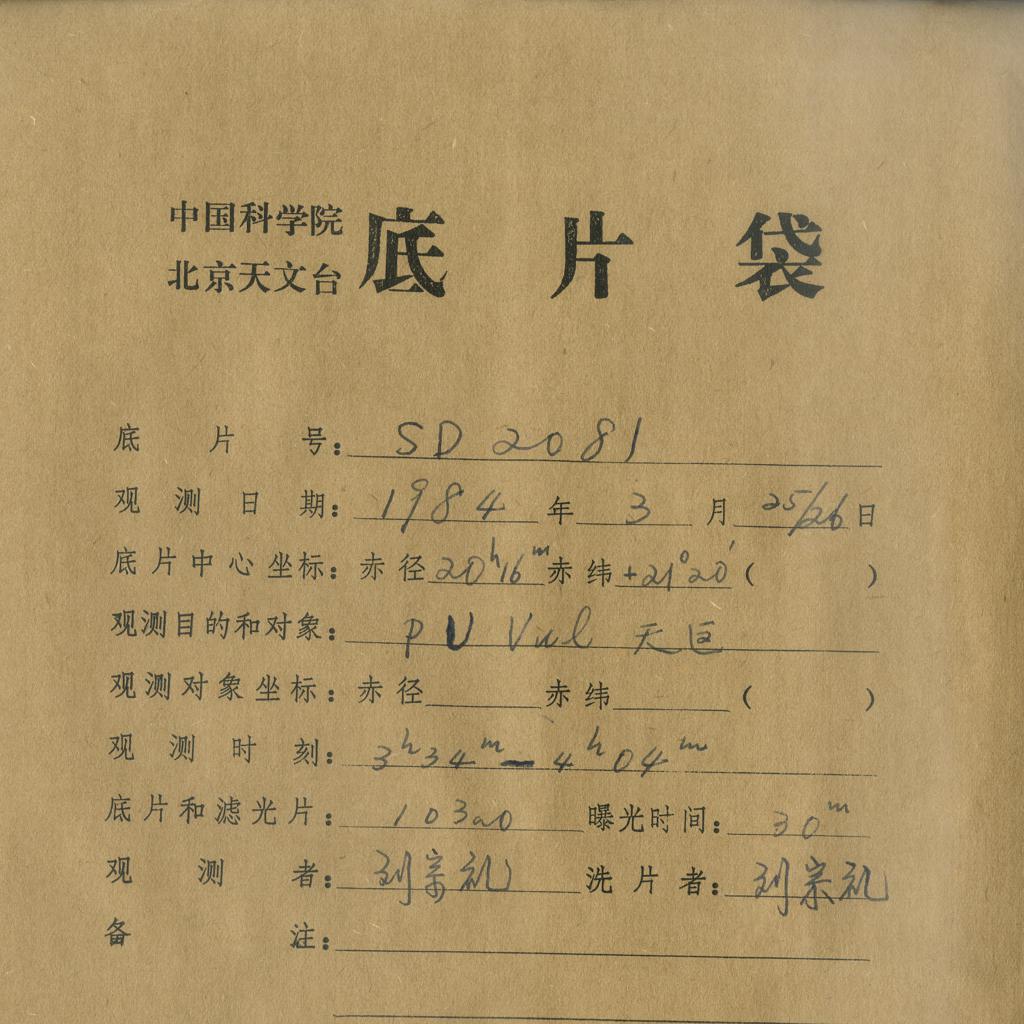 中国科学院
北京天文台
底片袋
底片号：SD 2081
观测日期：1984年3月25/26日
底片中心坐标：赤径20ʰ16ᵐ赤纬+21°20′（ ）
观测目的和对象：PU Vul 天区
观测对象坐标：赤径 赤纬 （ ）
观测时刻：3ʰ34ᵐ—4ʰ04ᵐ
底片和滤光片：103aO 曝光时间：30ᵐ
观测者：刘宗礼 洗片者：刘宗礼
备注：